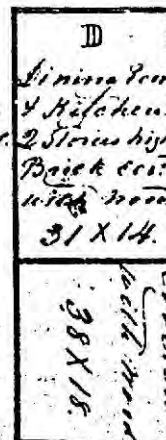 D
Dining Room
& Kitchen
2 Stories high
Brick
with
31 X 14.
38 X 18.
with